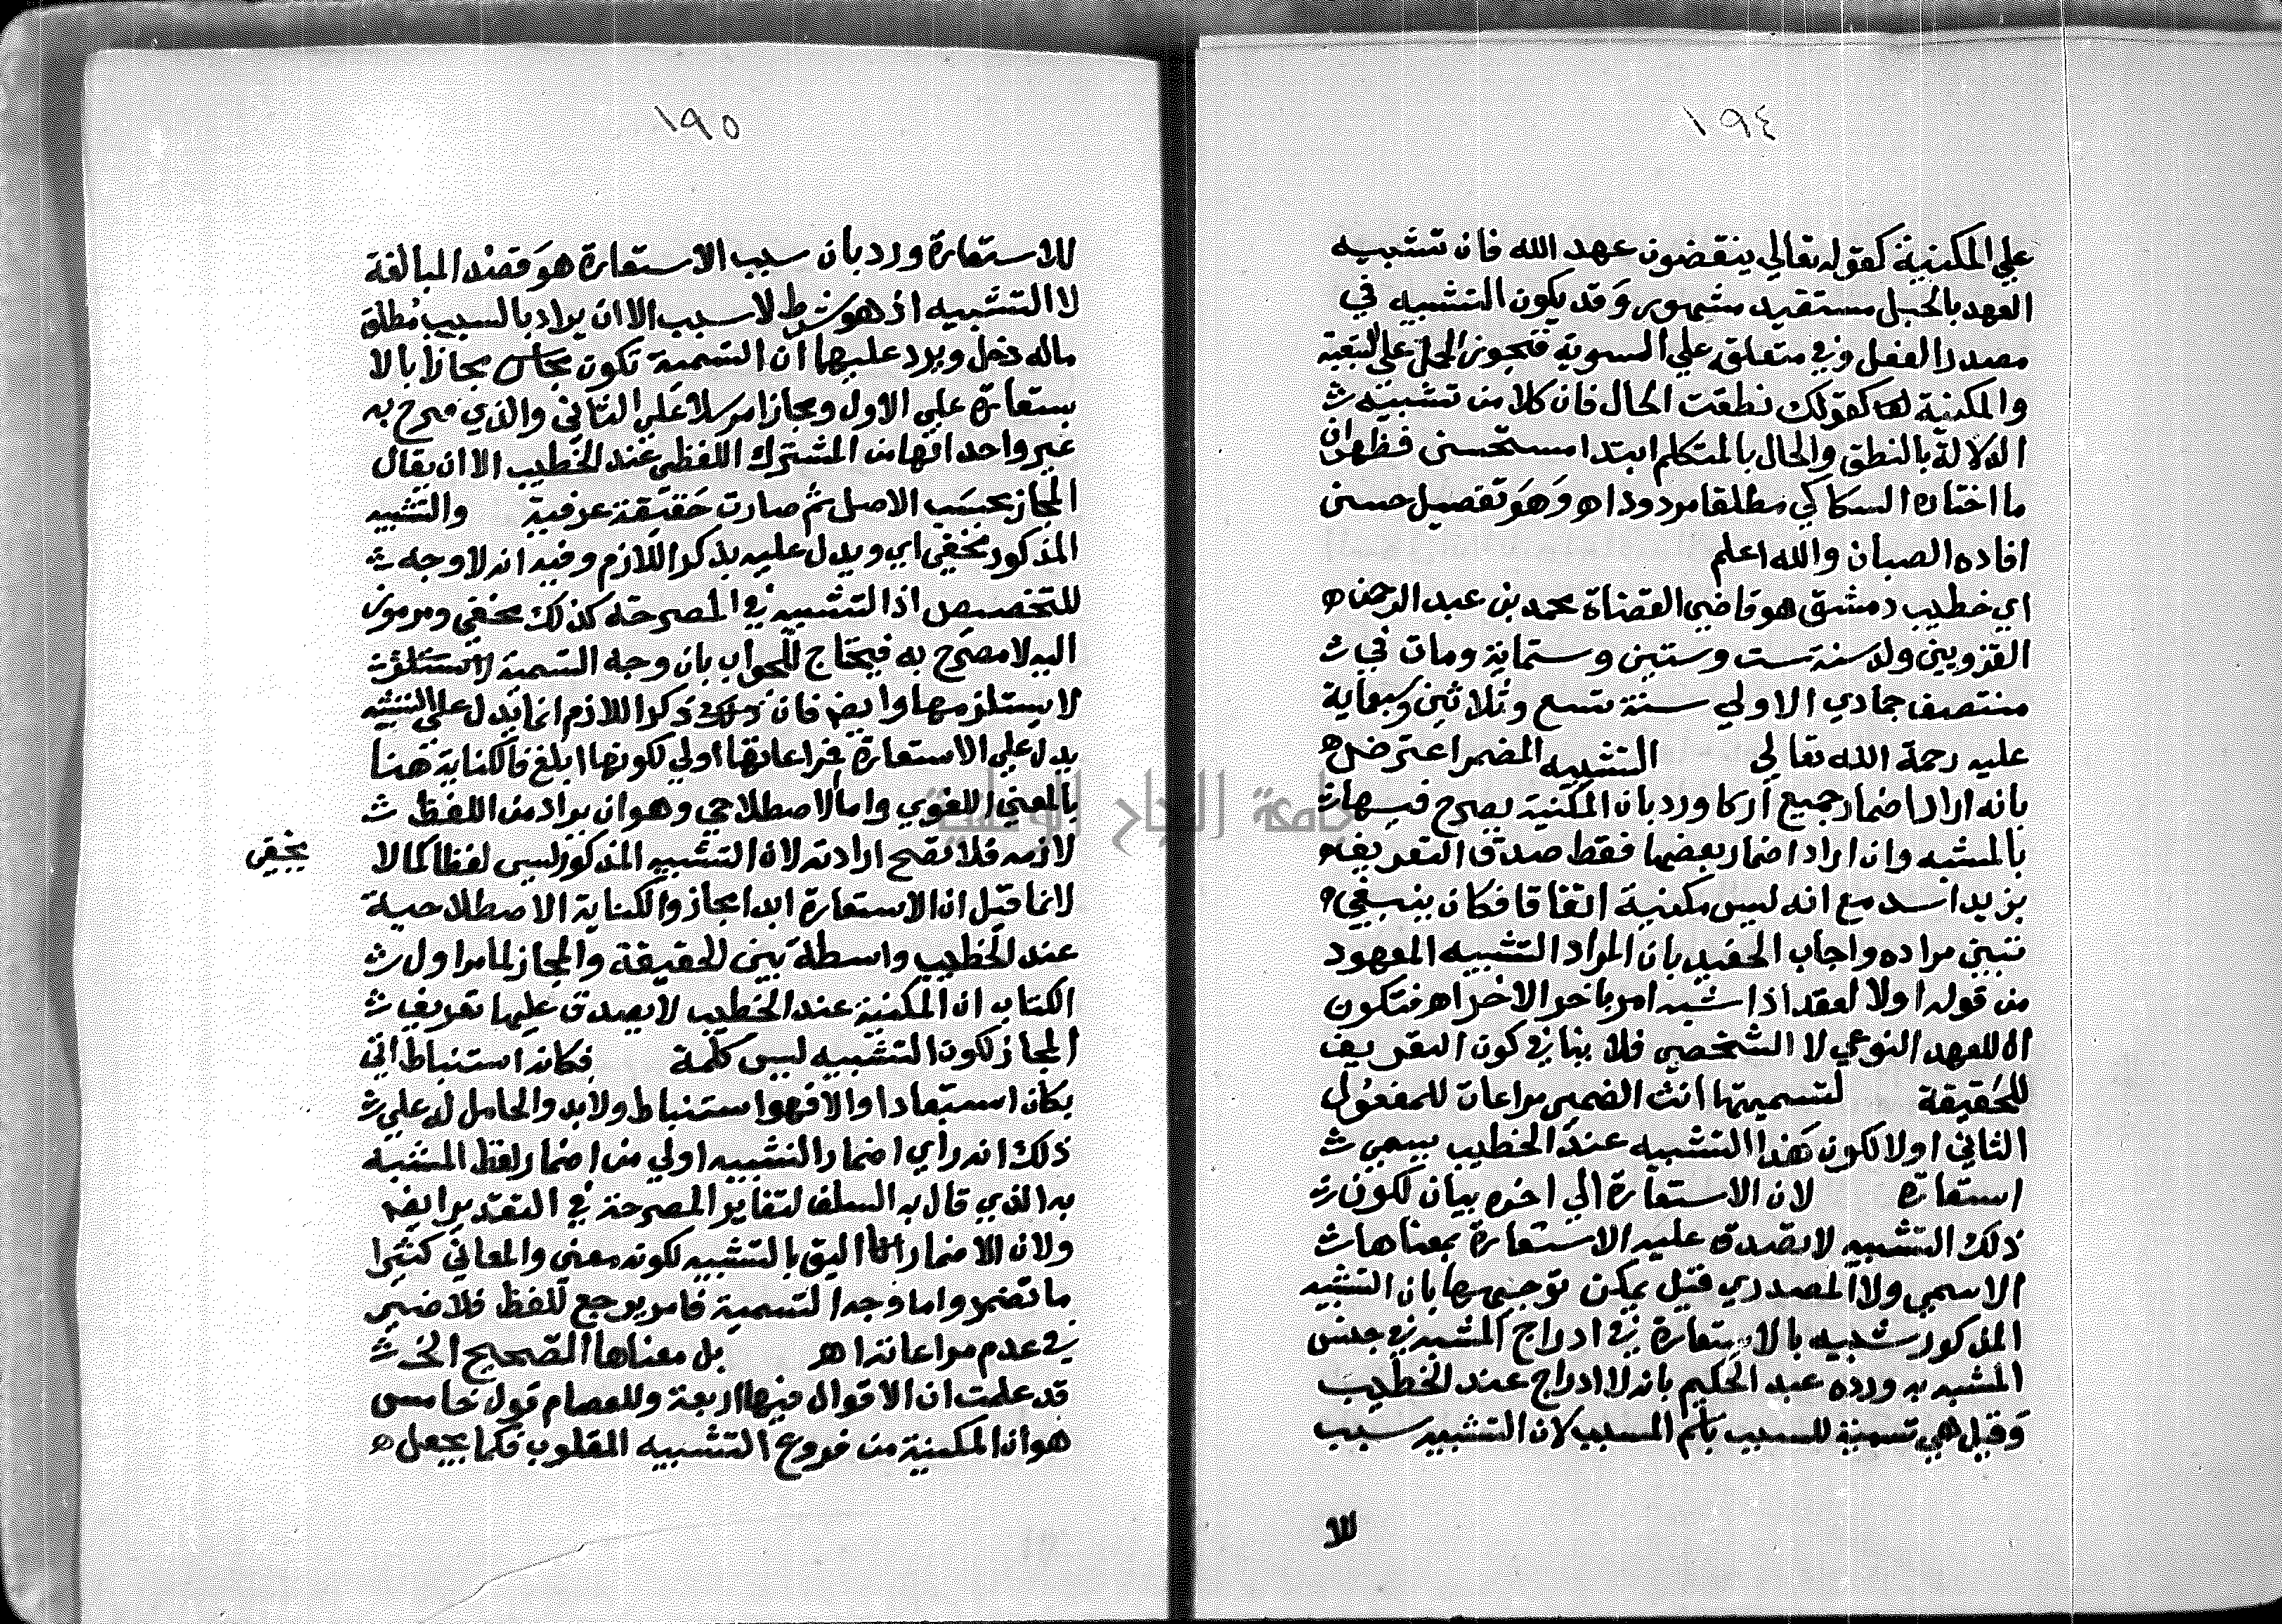 ١٩٤
علي المكنية كقوله تعالي ينقضون عهد الله فان تشبيه
العهد بالحبل مستفيد مشهور وقد يكون التشبيه في
مصدر الفعل وفي متعلقه علي السوية فتجوز الحمل علي التبعية
والمكنية لها كقولك نطقت الحال فان كلا من تشبيه
الدلالة بالنطق والحال بالمتكلم ابتدا مستحسن فظهر ان
ما اختاره السكاكي مطلقا مردود اه وهو تفصيل حسن
افاده الصبان والله اعلم
اي خطيب دمشق هو قاضي القضاة محمد بن عبد الرحمن
القزويني ولد سنة ست وستين وستماية ومات في
منتصف جمادي الاولي سنة تسع وثلاثين وسبعماية
عليه رحمة الله تعالي التشبيه المضمر اعترض
بانه ان اراد اضمار جميع اركا ورد بان المكنية يصرح فيها
بالمشبه وان اراد اضمار بعضها فقط صدق التعريف
بزيد اسد مع انه ليس مكنية اتفاقا فكان ينبغي
تبين مراده واجاب الحفيد بان المراد التشبيه المعهود
من قوله اولا لعقد اذا شبه امر باخر الاخر اه فتكون
ال للعهد النوعي لا الشخصي فلا ينافي كون التعريف
للحقيقة لتسميتها انث الضمير مراعات للمفعول
الثاني اولا لكون هذا التشبيه عند الخطيب يسمي
استعارة لان الاستعارة الي اخره بيان لكون
ذلك التشبيه لا تصدق عليه الاستعارة بمعناها
الاسمي ولا المصدري قيل يمكن توجيهها بان التشبيه
المذكور شبيه بالاستعارة في ادراج المشبه في جنس
المشبه به ورده عبد الحكيم بانه لا ادراج عند الخطيب
وقيل هي تسمية للسبب باسم المسبب لان التشبيه سبب
للا
١٩٥
للاستعارة ورد بان سبب الاستعارة هو قصد المبالغة
لا التشبيه اذ هو شرط لا سبب الا ان يراد بالسبب مطلق
ماله دخل ويرد عليها ان التسمية تكون مجازا بالا
ستعارة علي الاول ومجازا مرسلا علي الثاني والذي صرح به
غير واحد انها من المشترك اللفظي عند الخطيب الا ان يقال
المجاز بحسب الاصل ثم صارت حقيقة عرفية والتشبيه
المذكور مخفي اي ويدل عليه بذكر اللازم وفيه انه لا وجه
للتخصيص اذ التشبيه في المصرحة كذلك مخفي ومرموز
اليه لا مصرح به فيحتاج للجواب بان وجه التسمية
لا يستلزمها وايضا فان ذكر اللازم انما يدل علي التشبيه
يدل علي الاستعارة فمراعاتها اولي لكونها ابلغ فالكناية هنا
بالمعني اللغوي واما الاصطلاحي وهو ان يراد من اللفظ
لازمه فلا تصح ارادته لان التشبيه المذكور ليس لفظا كما لا
يخفي
لانما قيل ان الاستعارة ابدا مجاز والكناية الاصطلاحية
عند الخطيب واسطة بين الحقيقة والمجاز لما مر اول
الكتاب ان المكنية عند الخطيب لا يصدق عليها تعريف
المجاز لكون التشبيه ليس كلمة فكانه استنباط اتي
بكان استبعادا والا فهو استنباط ولا بد والحامل له علي
ذلك انه راي اضمار التشبيه اولي من اضمار لفظ المشبه
به الذي قال به السلف لتغاير المصرحة في التقدير ايضا
ولان الاضمار اليق بالتشبيه لكونه معني والمعاني كثيرا
ما تضمر واما وجه التسمية فامر يرجع للفظ فلا ضير
في عدم مراعاته اه بل معناها الصحيح الخ
قد علمت ان الاقوال فيها اربعة وللعصام قول خامس
هو ان المكنية من فروع التشبيه المقلوب فكما يجعل